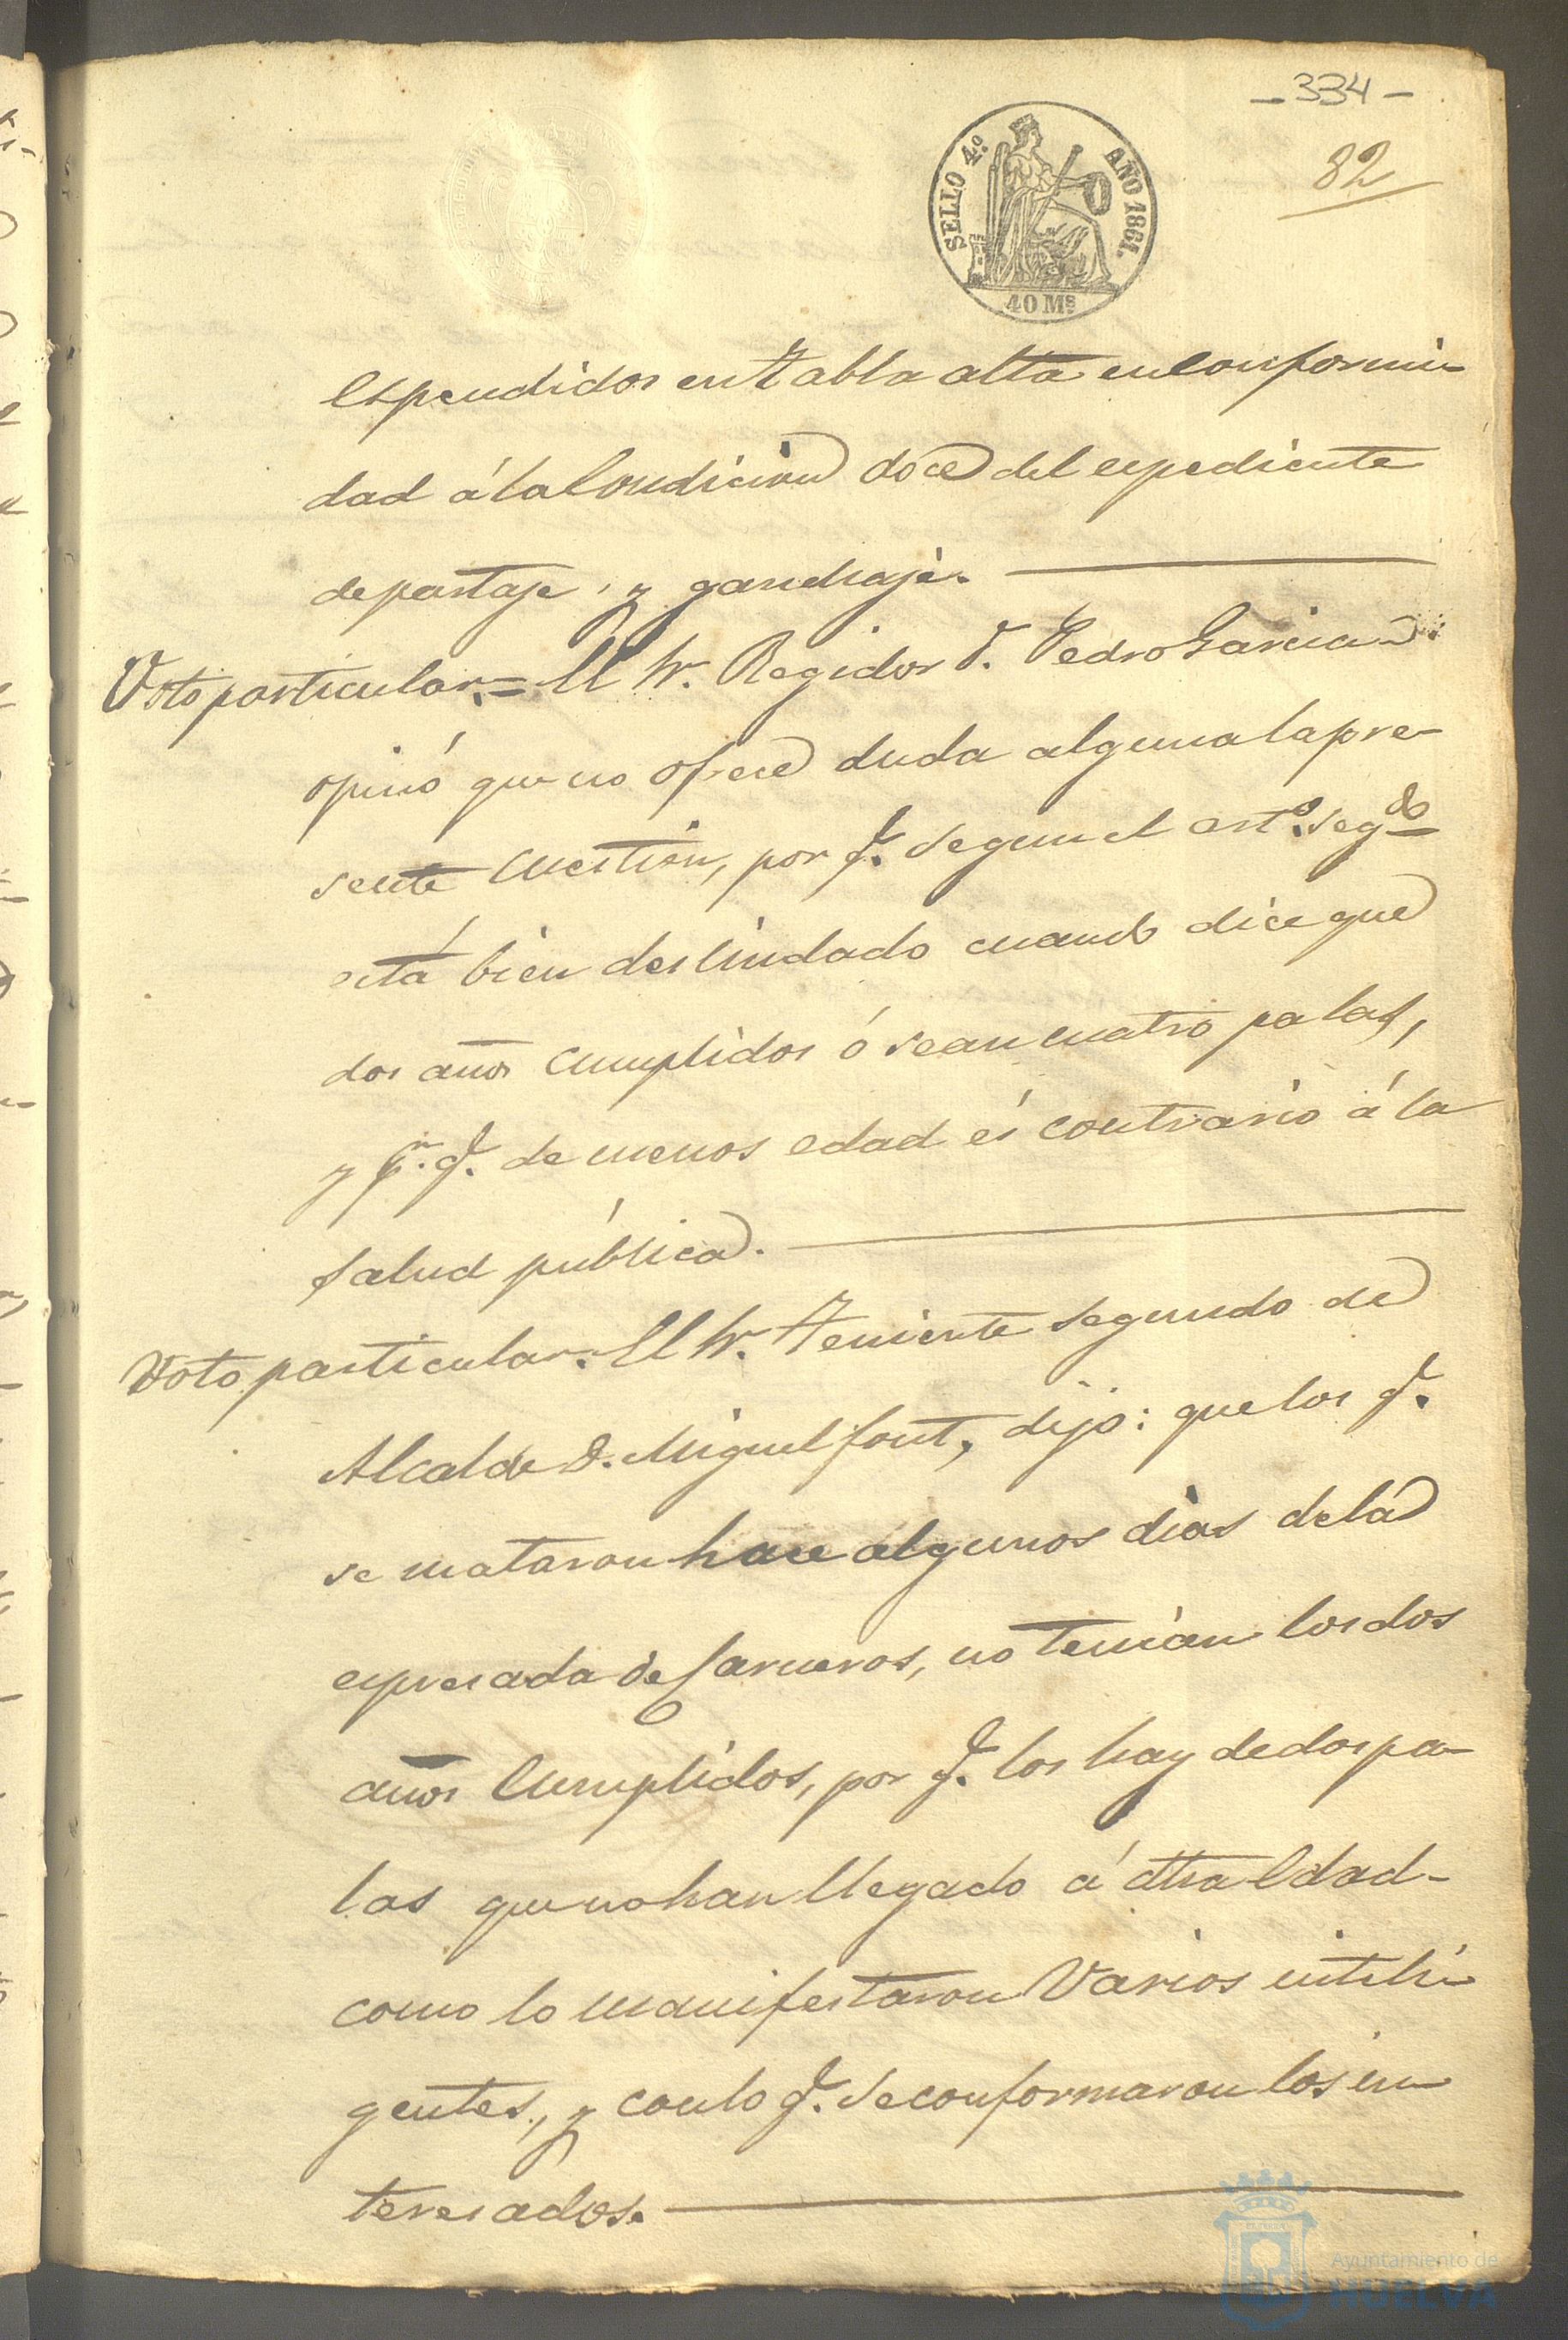 - 334 -
82
SELLO 4.º AÑO 1861.
40 Ms
espendidos en Tabla alta en conformi-
dad á la Condicion doce del espediente
de partaje, y ganchaje.
Voto particular.= El Sr. Regidor D. Pedro Garcia
opinó que no ofrece duda alguna la pre-
sente Cuestion, por q. segun el artº. segdo
está bien deslindado cuando dice que
dos años Cumplidos ó sean cuatro palas,
y pr. q. de menos edad és contrario á la
Salud pública.
Voto particular. El Sr. Teniente segundo de
Alcalde D. Miguel font, dijo: que los q.
se mataron hace algunos dias de la
espresada de Carneros, no tenian los dos
años Cumplidos, por q. los hay de dos pa-
las que no han llegado á dha Edad-
como lo manifestaron Varios inteli-
gentes, y con lo q. se conformaron los in-
teresados.
Ayuntamiento de
HUELVA